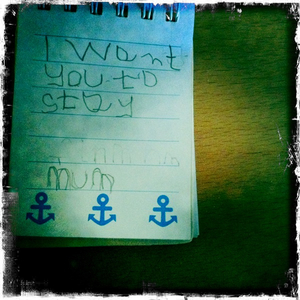 I Want
you to
stay
mum